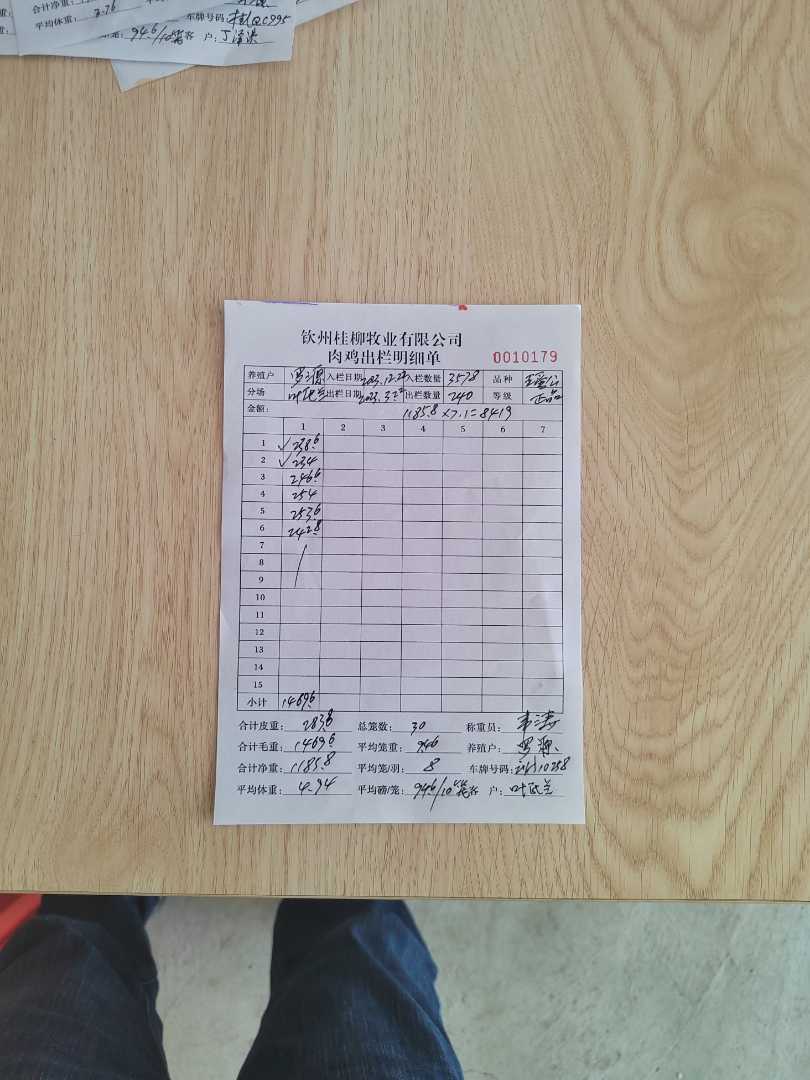 合计
平均体重: 2.76 车牌号码: QC995
94.6/10 户:
钦州桂柳牧业有限公司
肉鸡出栏明细单 0010179
养殖户 入栏日期 入栏数量 3578 品种
分场 出栏日期 出栏数量 240 等级 正品
金额: 1185.8×7.1=8419
1 2 3 4 5 6 7
1 ✓238.6
2 ✓234
3 246.6
4 254
5 253.6
6 242.8
7
8
9
10
11
12
13
14
15
小计 1469.6
合计皮重: 283.8 总笼数: 30 称重员: 韦涛
合计毛重: 1469.6 平均笼重: 9.46 养殖户:
合计净重: 1185.8 平均笼/羽: 8 车牌号码: 10258
平均体重: 4.94 平均磅/笼: 94.6/10 客户: